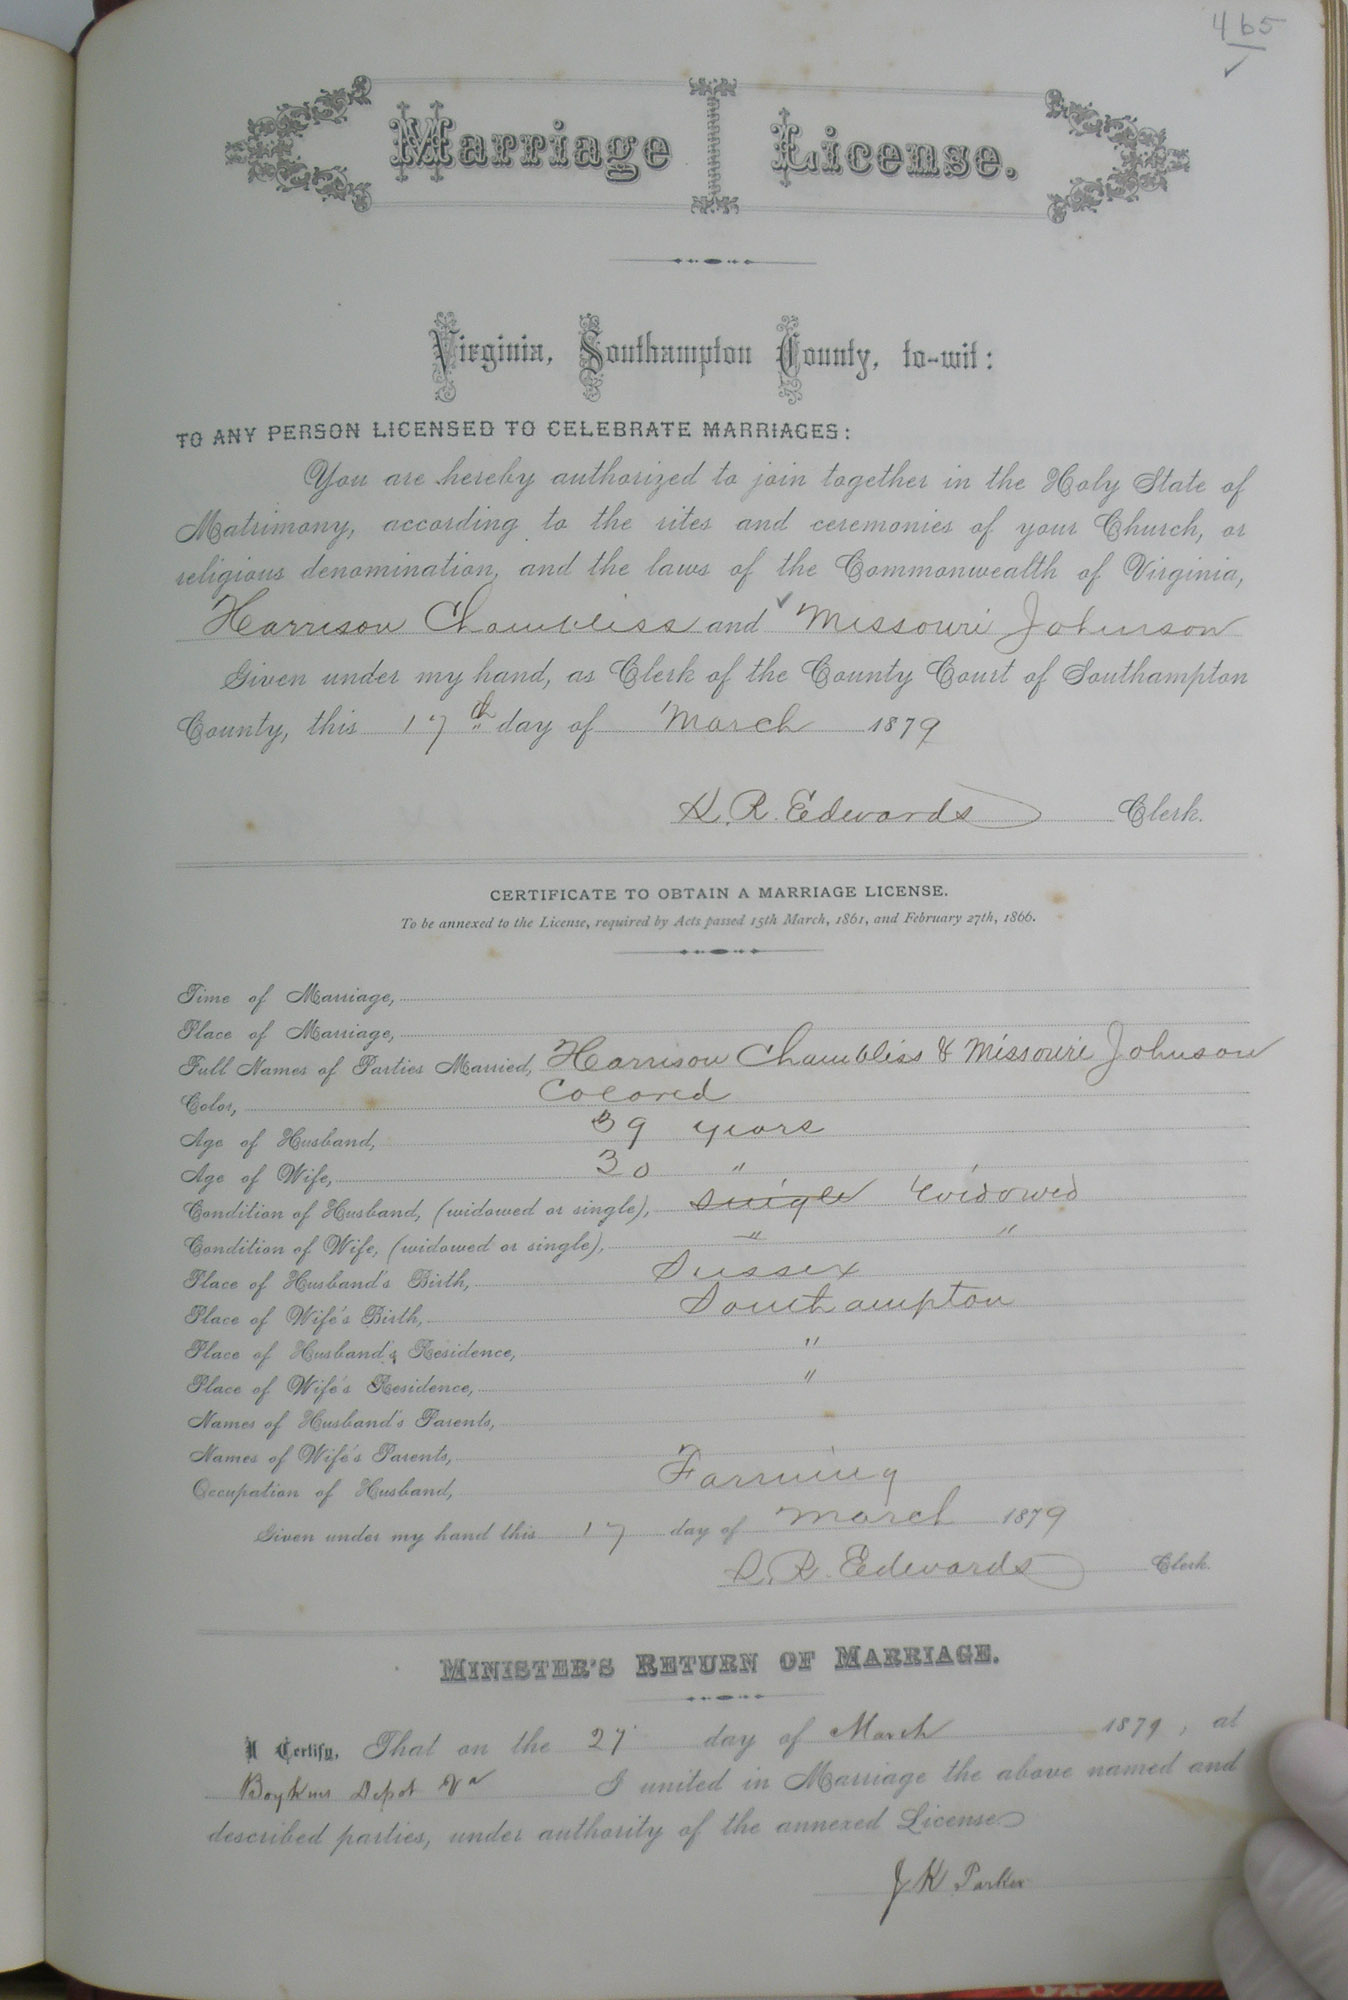 465
Marriage License.
Virginia, Southampton County, to-wit:
TO ANY PERSON LICENSED TO CELEBRATE MARRIAGES:
You are hereby authorized to join together in the Holy State of
Matrimony, according to the rites and ceremonies of your Church, or
religious denomination, and the laws of the Commonwealth of Virginia,
Harrison Chambliss and Missouri Johnson
Given under my hand, as Clerk of the County Court of Southampton
County, this 17th day of March 1879
L. R. Edwards Clerk.
CERTIFICATE TO OBTAIN A MARRIAGE LICENSE.
To be annexed to the License, required by Acts passed 15th March, 1861, and February 27th, 1866.
Time of Marriage,
Place of Marriage,
Full Names of Parties Married, Harrison Chambliss & Missouri Johnson
Color, Colored
Age of Husband, 39 years
Age of Wife, 30 "
Condition of Husband, (widowed or single), single widowed
Condition of Wife, (widowed or single), " "
Place of Husband's Birth, Sussex
Place of Wife's Birth, Southampton
Place of Husband's Residence, "
Place of Wife's Residence, "
Names of Husband's Parents,
Names of Wife's Parents,
Occupation of Husband, Farming
Given under my hand this 17 day of March 1879
L. R. Edwards Clerk.
MINISTER'S RETURN OF MARRIAGE.
I Certify, That on the 27 day of March 1879, at
Boykins Depot Va I united in Marriage the above named and
described parties, under authority of the annexed License
J K Parker